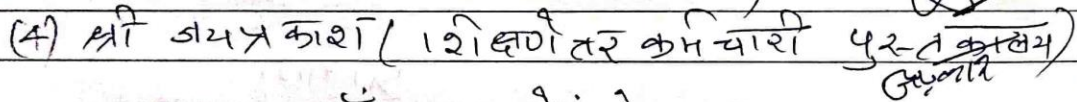 (4) श्री जयप्रकाश (शिक्षणेतर कर्मचारी पुस्तकालय)